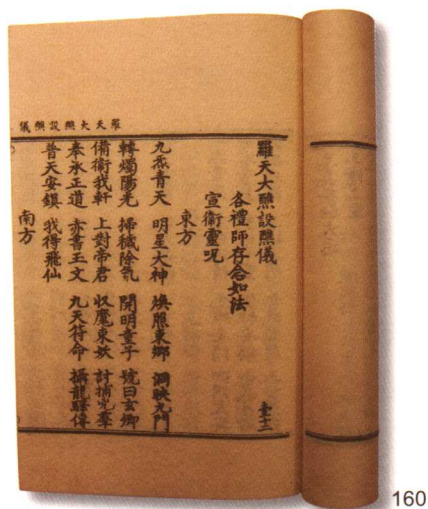 羅天大醮設醮儀
羅天大醮設醮儀 壹十二
各禮師存念如法
宣衛靈呪
東方
九炁青天 明星大神 煥照東鄉 洞映九門
轉燭陽光 掃穢除氛 開明童子 號曰玄卿
備衛我軒 上對帝君 收魔束妖 討捕兇羣
奉承正道 赤書玉文 九天符命 攝龍驛傳
普天安鎮 我得飛仙
南方
160